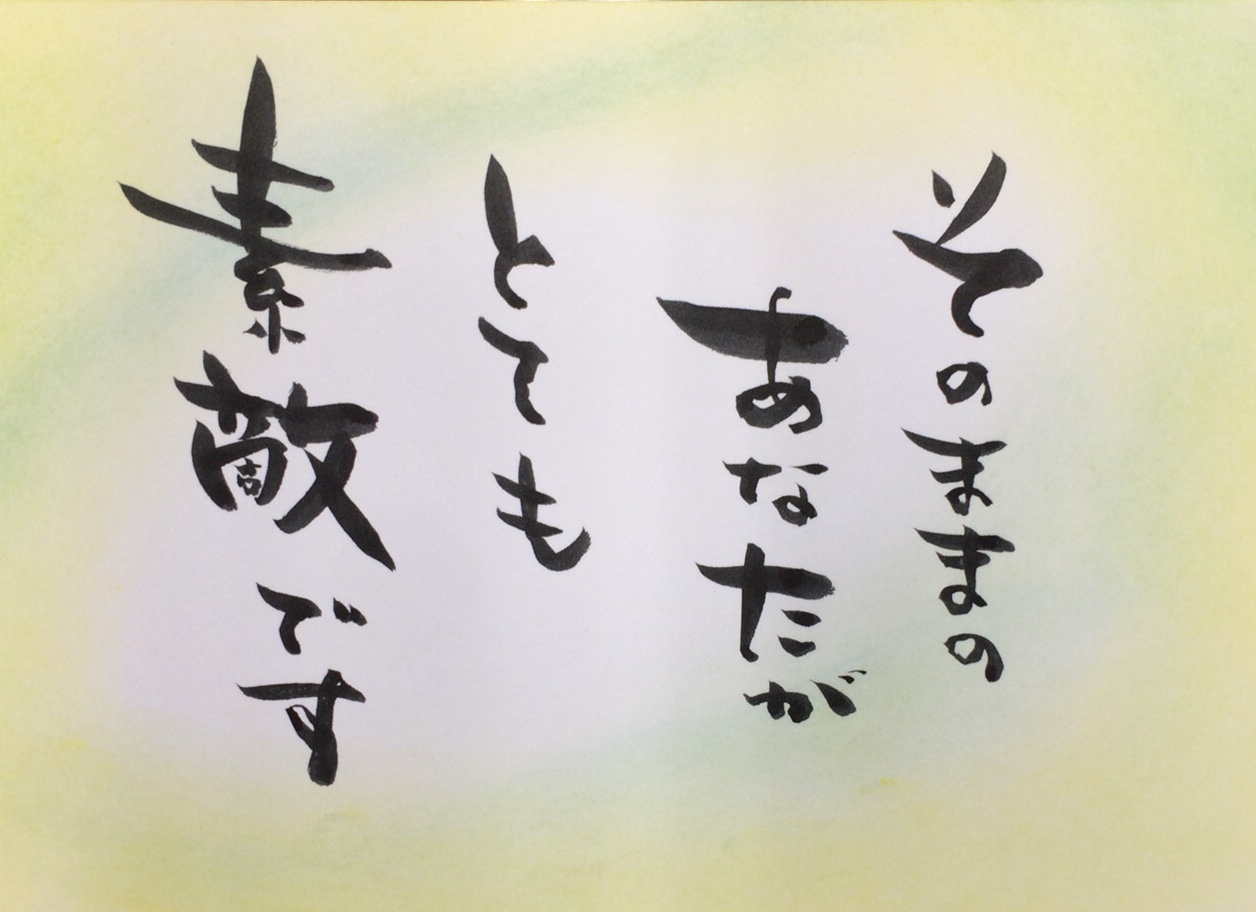 そのままの
あなたが
とても
素敵です